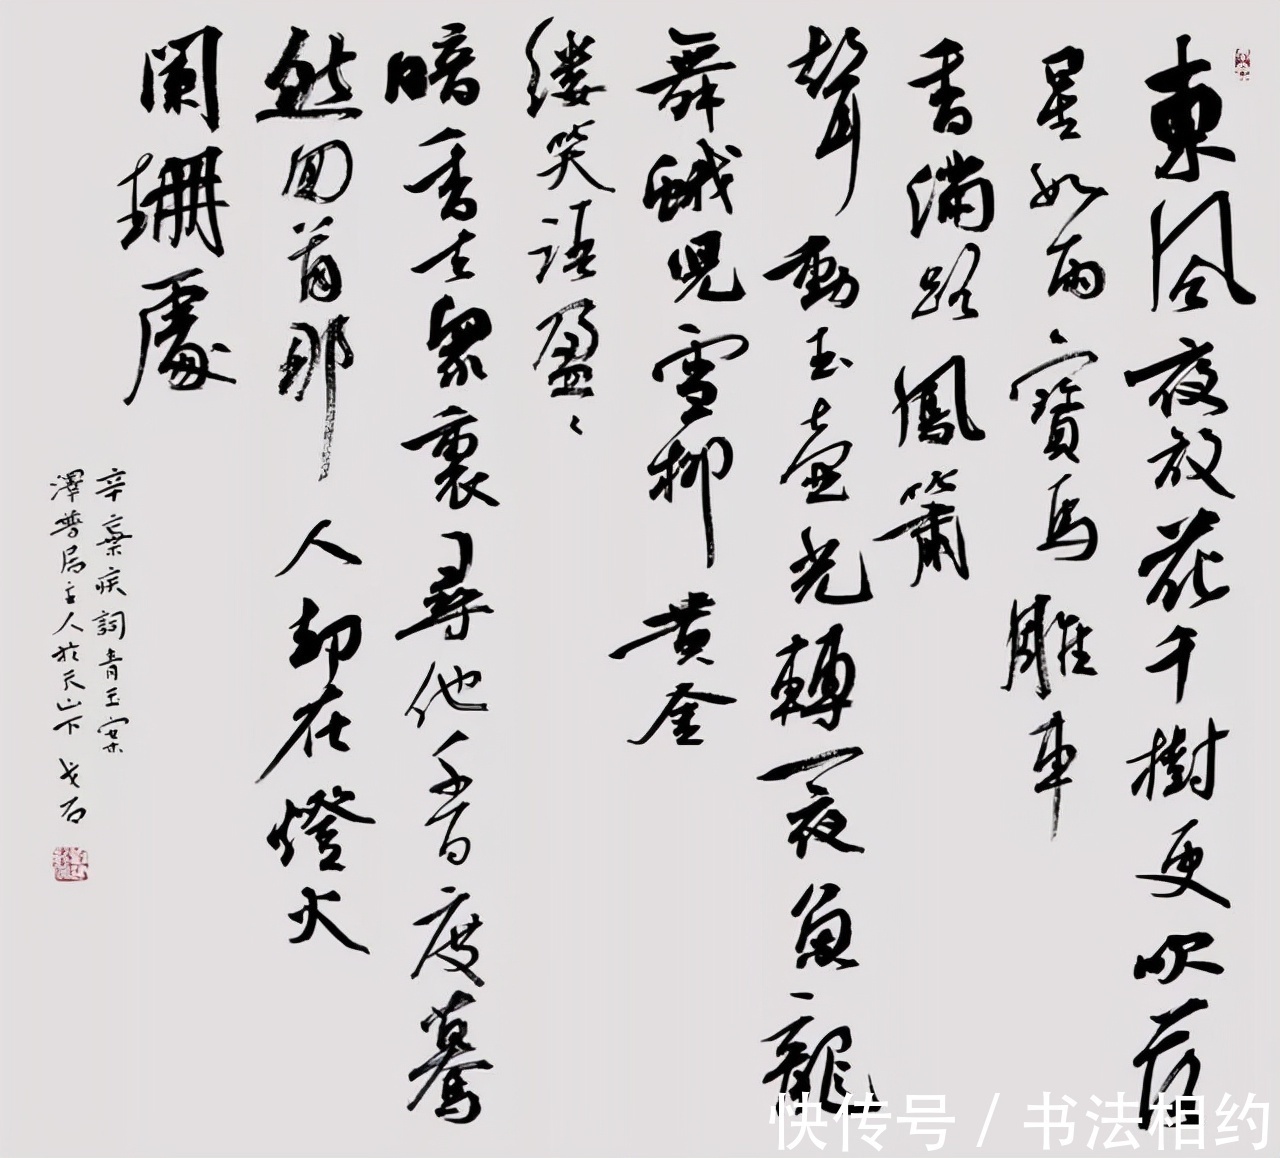 東風夜放花千樹更吹落
星如雨寶馬雕車
香滿路鳳簫
聲動玉壺光轉一夜魚龍
舞蛾兒雪柳黄金
缕笑語盈々
暗香去衆裏尋他千百度驀
然回首那人却在燈火
闌珊處
辛棄疾詞青玉案
澤普居主人於天山下戈石
快传号 / 书法相约